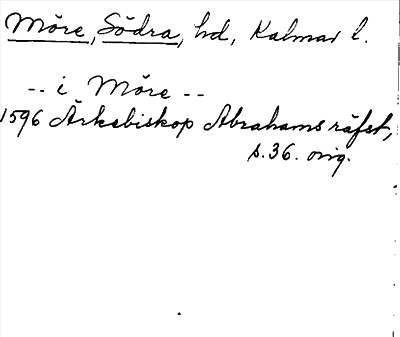 Möre, Södra, hd, Kalmar l.
-- i Möre --
1596 Ärkebiskop Abrahams räfst,
s. 36. orig.